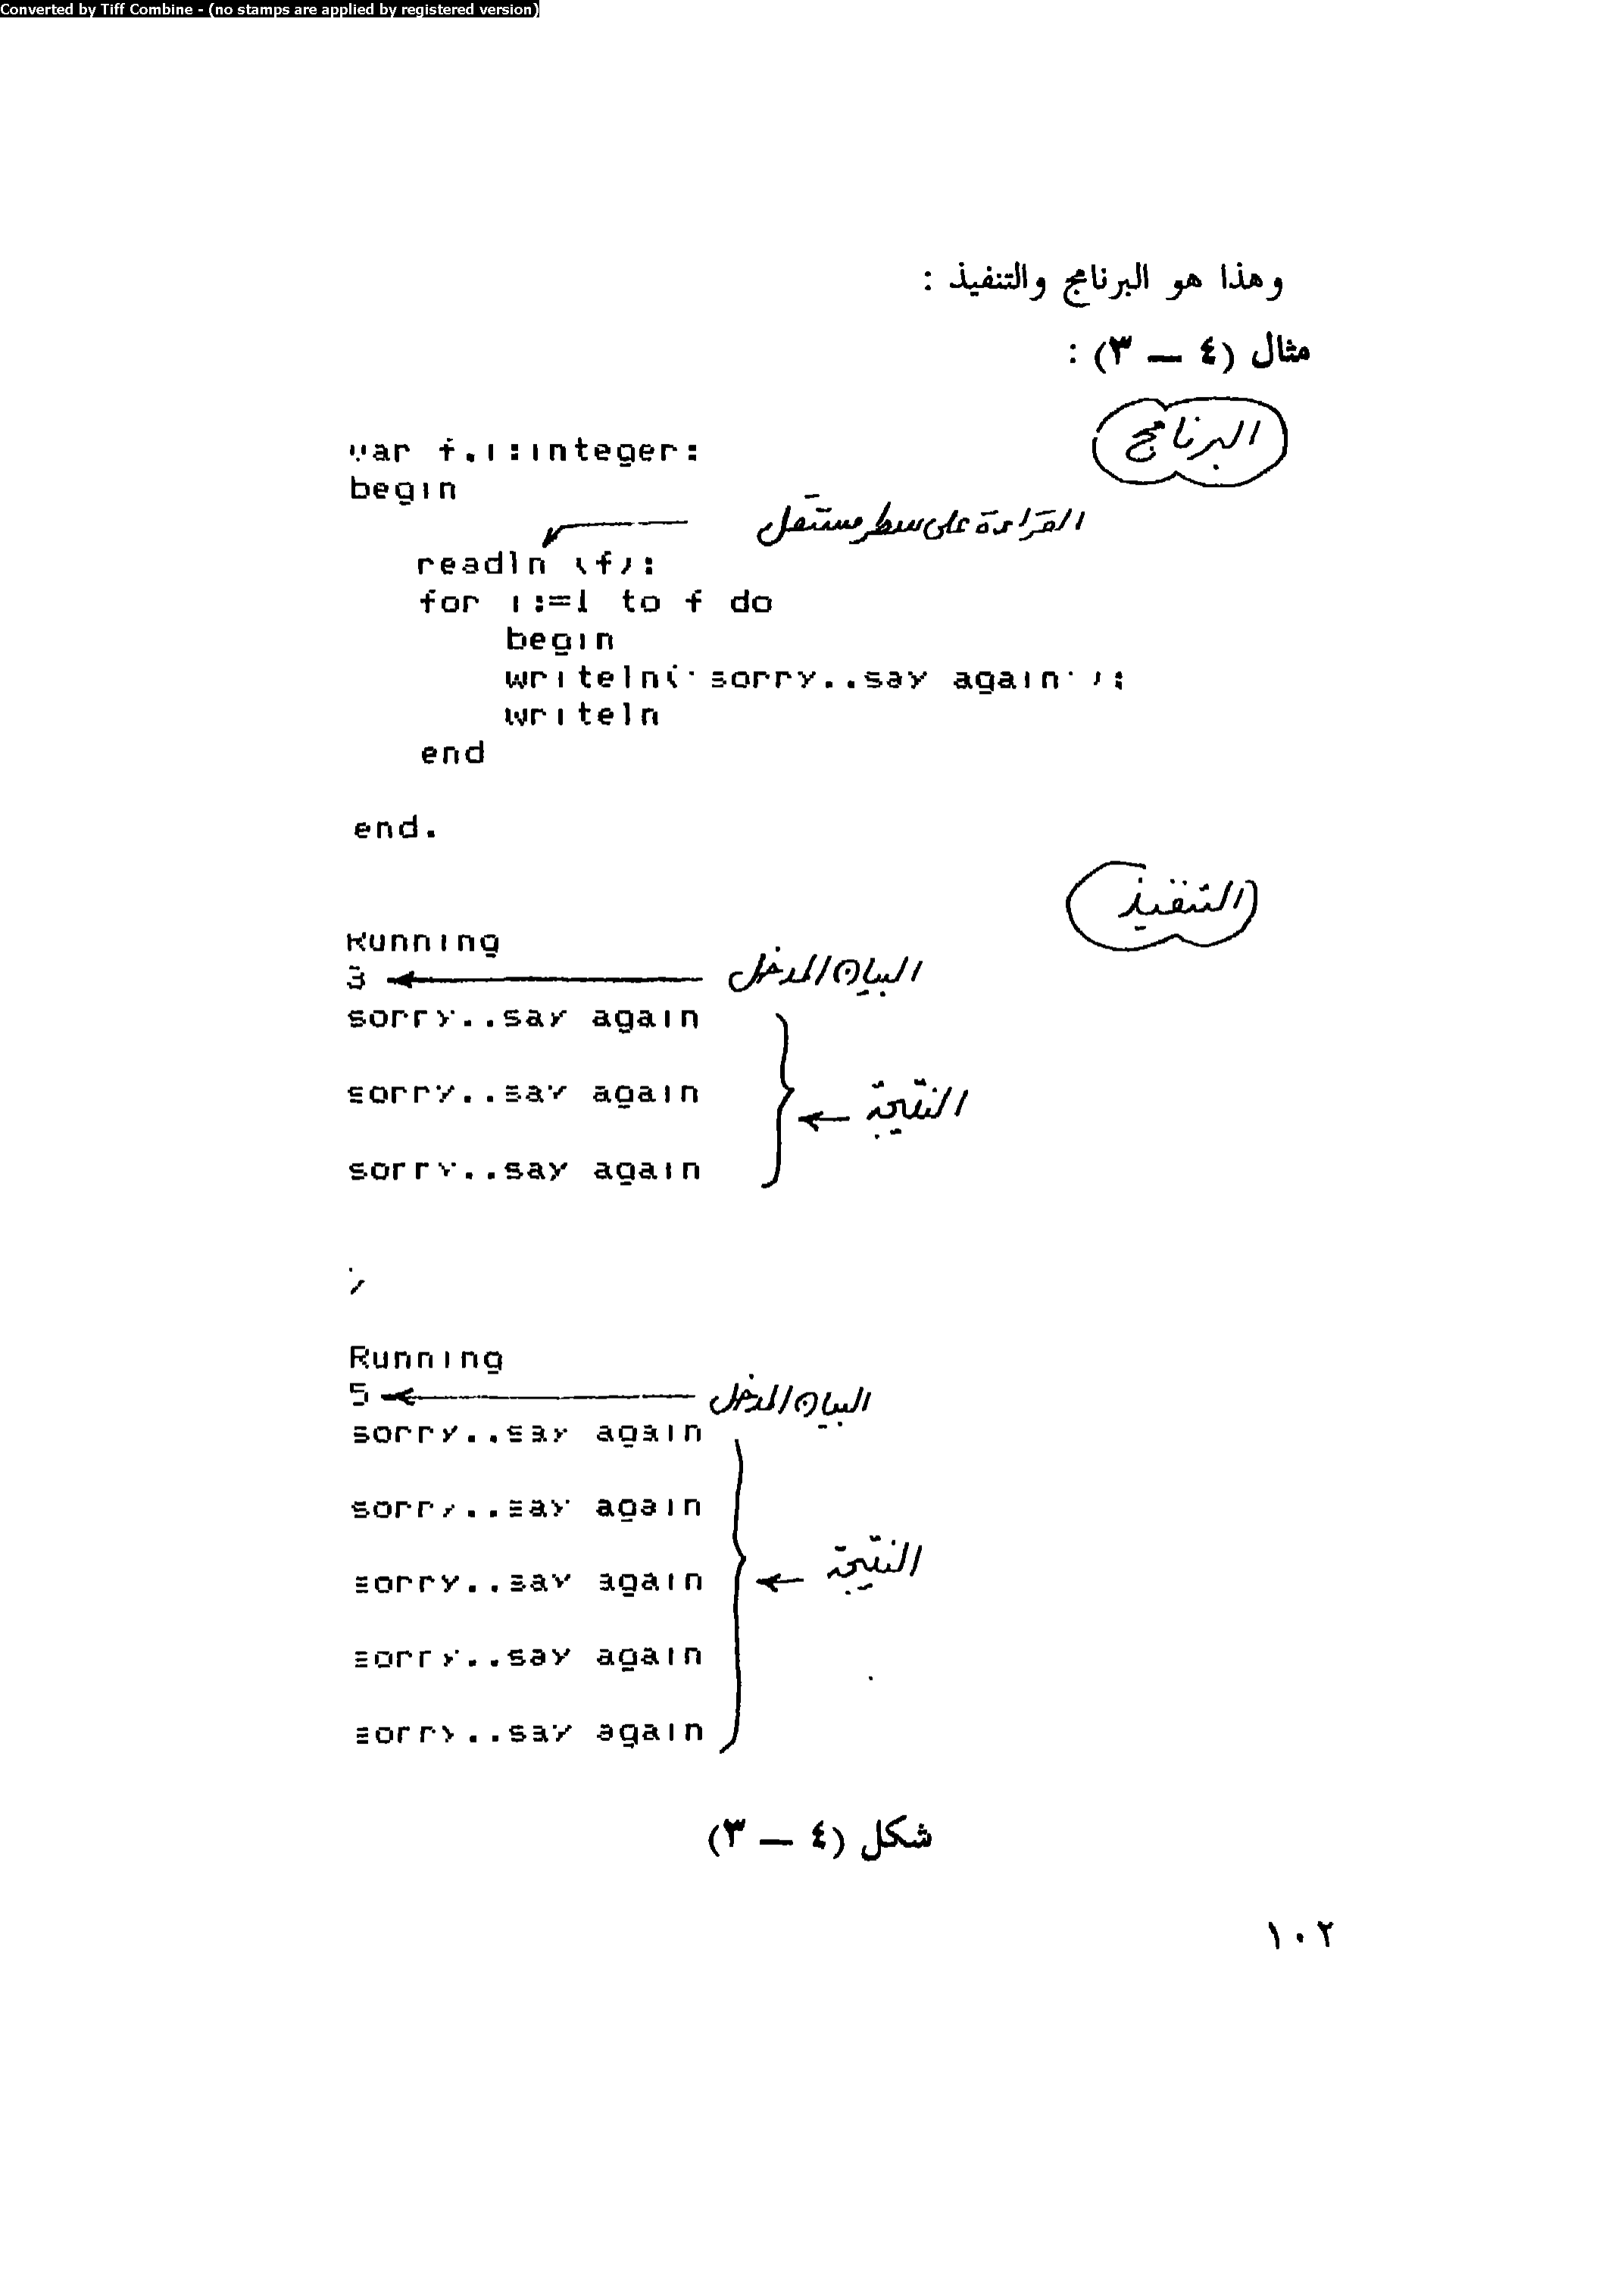 Converted by Tiff Combine - (no stamps are applied by registered version)
وهذا هو البرنامج والتنفيذ :
مثال (٤ — ٣) :
البرنامج
var f,i:integer;
begin
القراءة على سطر مستقل
readln (f);
for i:=1 to f do
begin
writeln('sorry..say again');
writeln
end
end.
التنفيذ
Running
3
البيان المدخل
sorry..say again
sorry..say again
النتيجة
sorry..say again
>
Running
5
البيان المدخل
sorry..say again
sorry..say again
sorry..say again
النتيجة
sorry..say again
sorry..say again
شكل (٤ — ٣)
١٠٢